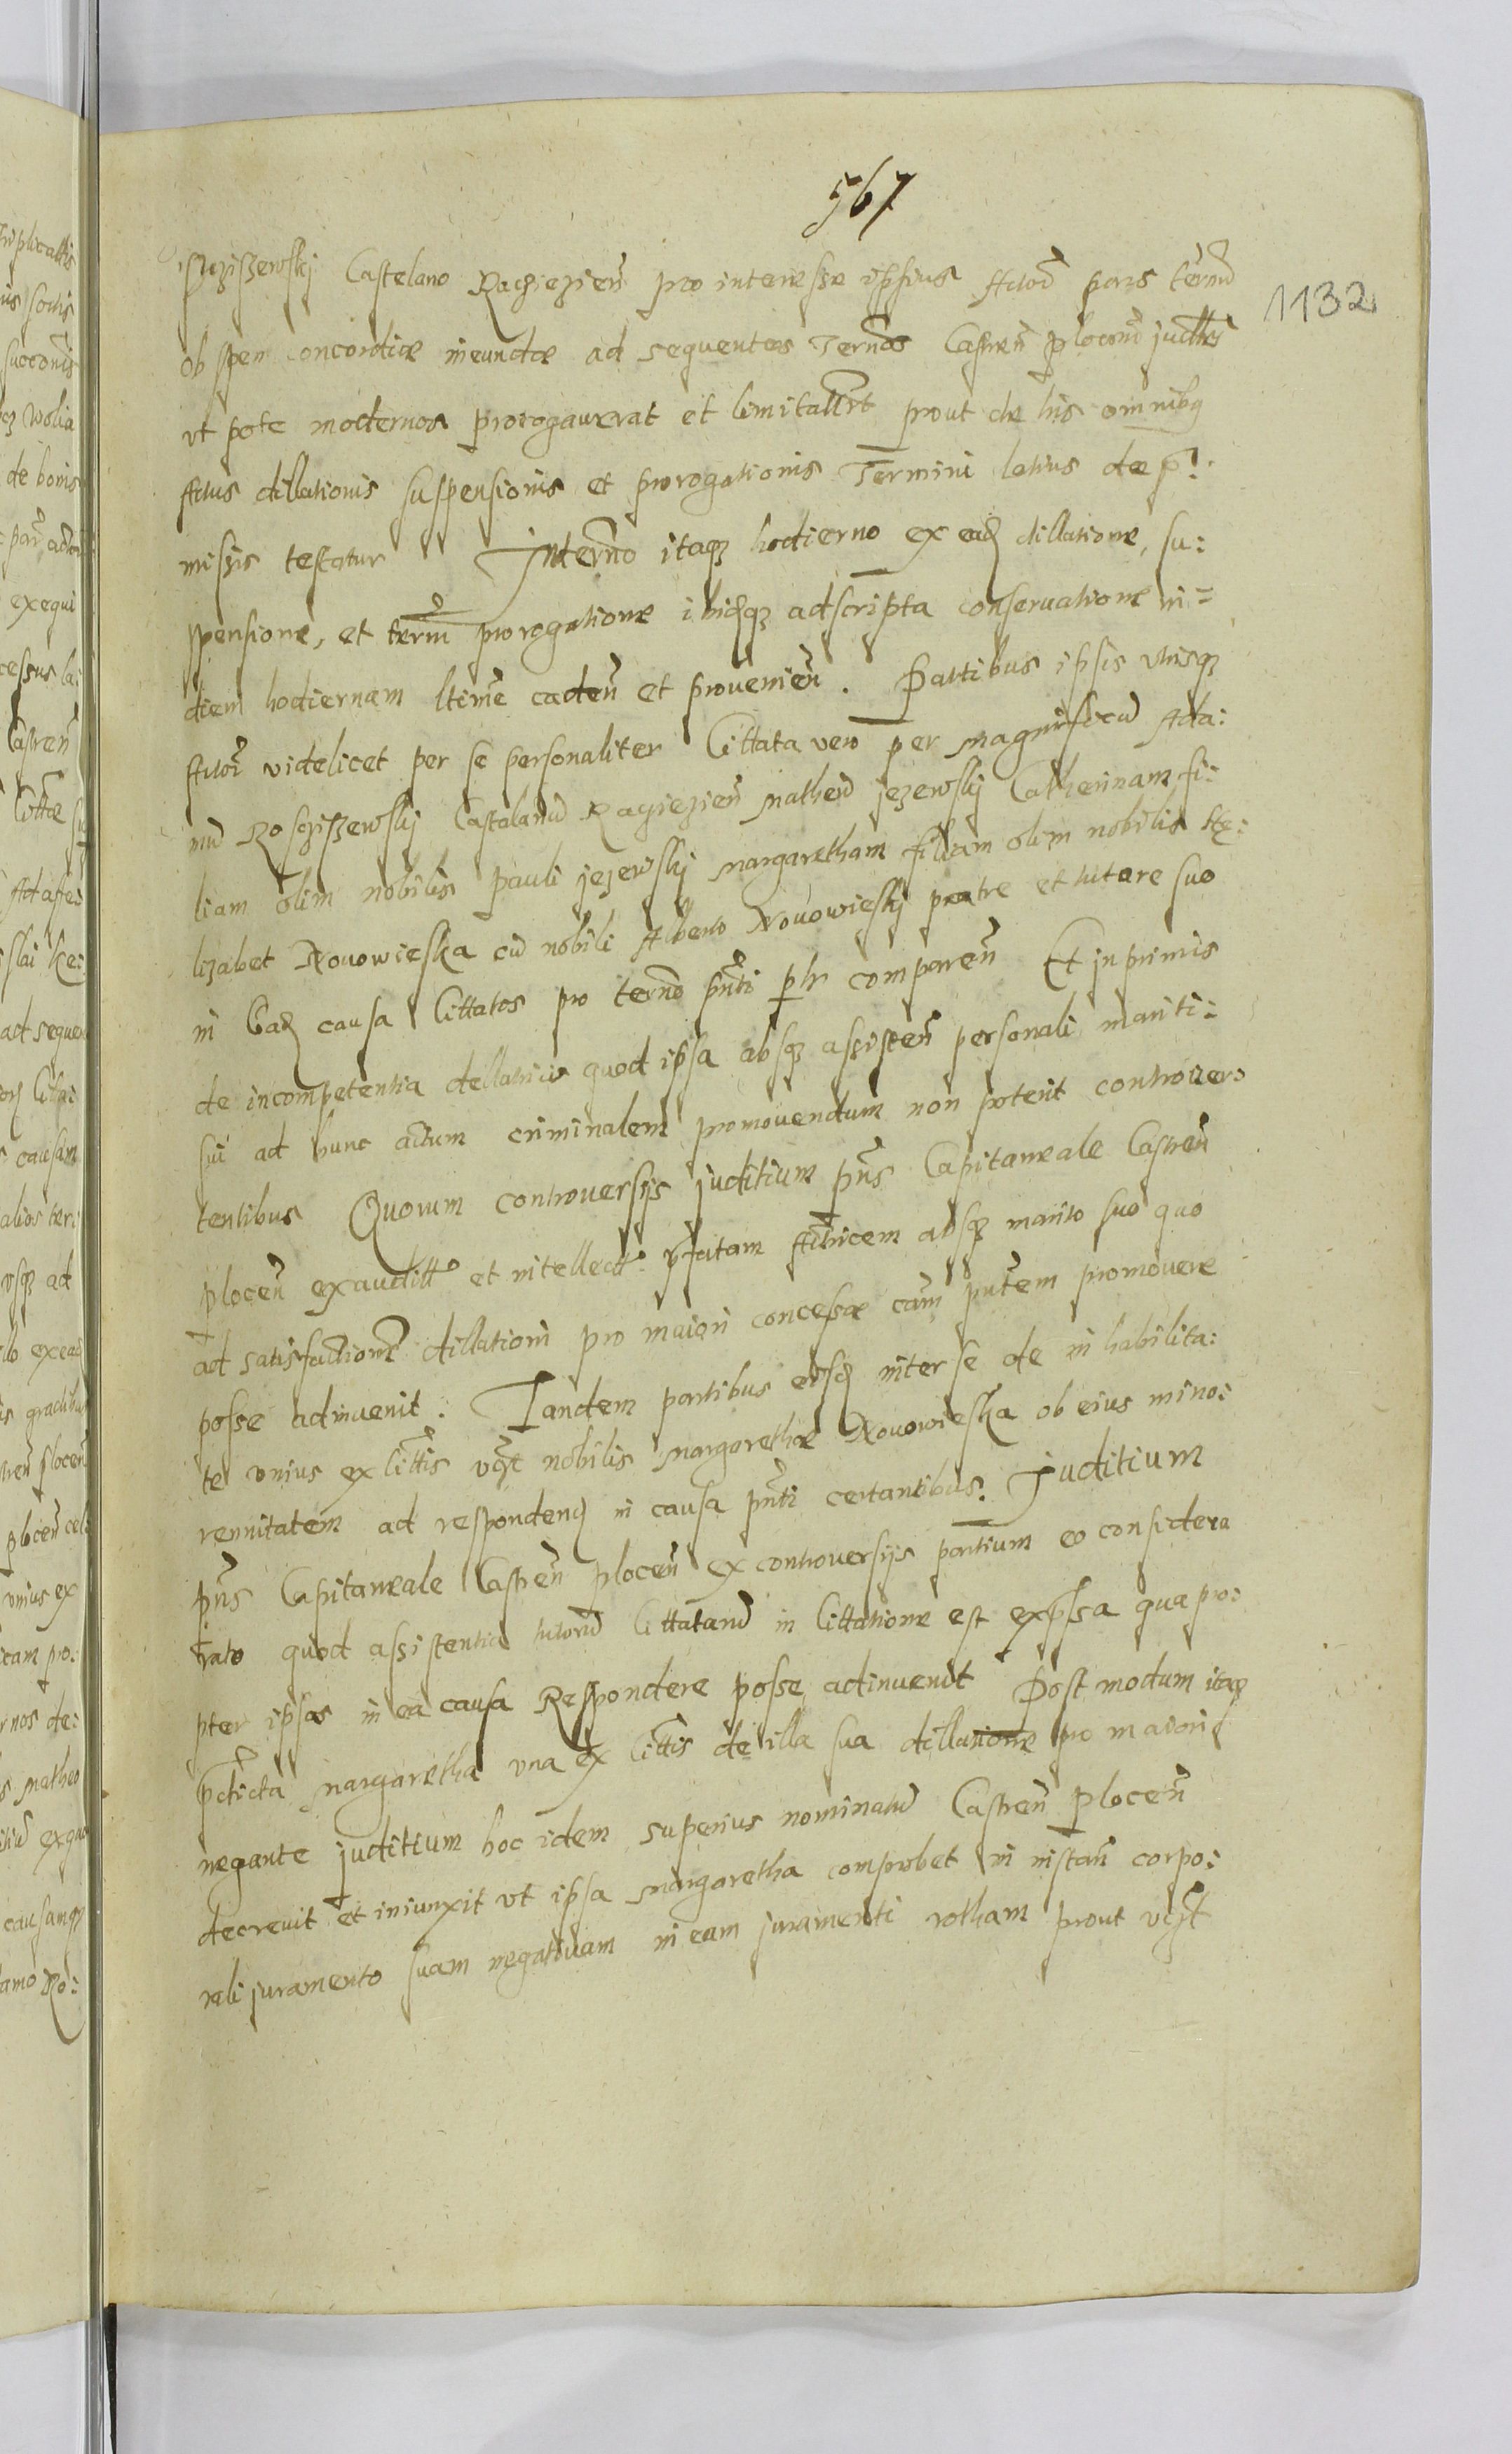 567
1132
sczissewskj Castelano Racziezien̄ pro interesse ipsius Actor̄ pars termū
ob spem concordiæ ineundæ ad sequentes Termōs Castren̄ plocen̄
vt pote modernos prorogauerat et limitauit prout de his omnibq
Actus dillationis suspensionis et prorogationis Termini latius de p̄:
missis testatur Intermo itaqz hodierno ex ead dillatione, su:
spensione, et term̄ prorogatione ibidqz adscripta conseruatione in=
diem hodiernam ltime caden̄ et prouenien̄. Partibus ipsis vtrisqz
Actor̄ videlicet per se personaliter Cittata vero per magnificū Ada:
mū Rosczissewskj Castelanū Racziezien̄ Matheū jezewskj Catherinam fi:
liam olim nobilis pauli jezewskj Margaretham filiam olim nobilis He:
lizabet Nouowieska cū nobili Alberto Nouowieskj patre et tutore suo
in Ead causa Cittatos pro termō pn̄ti plr comparen̄ Et in primis
de incompetentia dellatricis quod ipsa absqz assisten̄ personali mariti:
sui ad hunc actum criminalem promouendum non poterit controuer:
tentibus Quorum controuersijs juditium pn̄s Capitaneale Castren̄
plocen̄ exauditt et intellectt p̄fatam Actricem absqz marito suo quo
ad satisfactionē dillationi pro maiori concessæ cām pn̄tem promouere
posse adinuenit. Tandem partibus eisd inter se de in habilita:
te vnius ex cittis vdzt nobilis Margarethæ Nouowieska ob eius mino:
rennitatem ad respondend in causa pn̄ti certantibus. Juditium
pn̄s Capitaneale Castren̄ plocen̄ ex controuersijs partium eo considera
rato quod assistentia tutorū Cittatarū in Cittatione est expssa quapro:
pter ipsas in ea causa Respondere posse adinuenit Post modum itaqz
p̄dicta Margaretha vna ex Cittis de illa sua dillatione pro maiori
negante juditium hoc idem superius nominatū Castren̄ plocen̄
decreuit et iniunxit vt ipsa Margaretha comprobet in instan̄ corpo:
rali juramento suam negatiuam in eam juramenti rotham prout vdzt